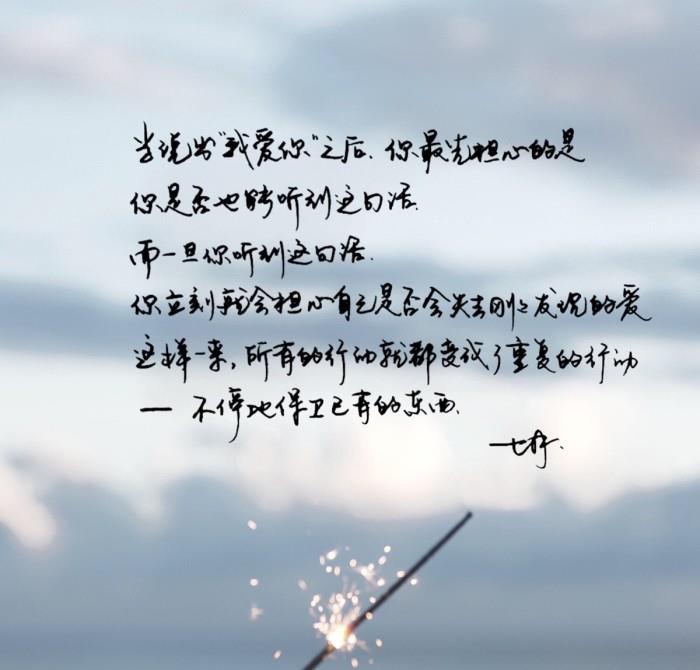 当说出“我爱你”之后. 你最先担心的是
你是否也能听到这句话.
而一旦你听到这句话.
你立刻就会担心自己是否会失去刚刚发现的爱
这样一来, 所有的行动就都变成了重复的行动
— 不停地保卫已有的东西.